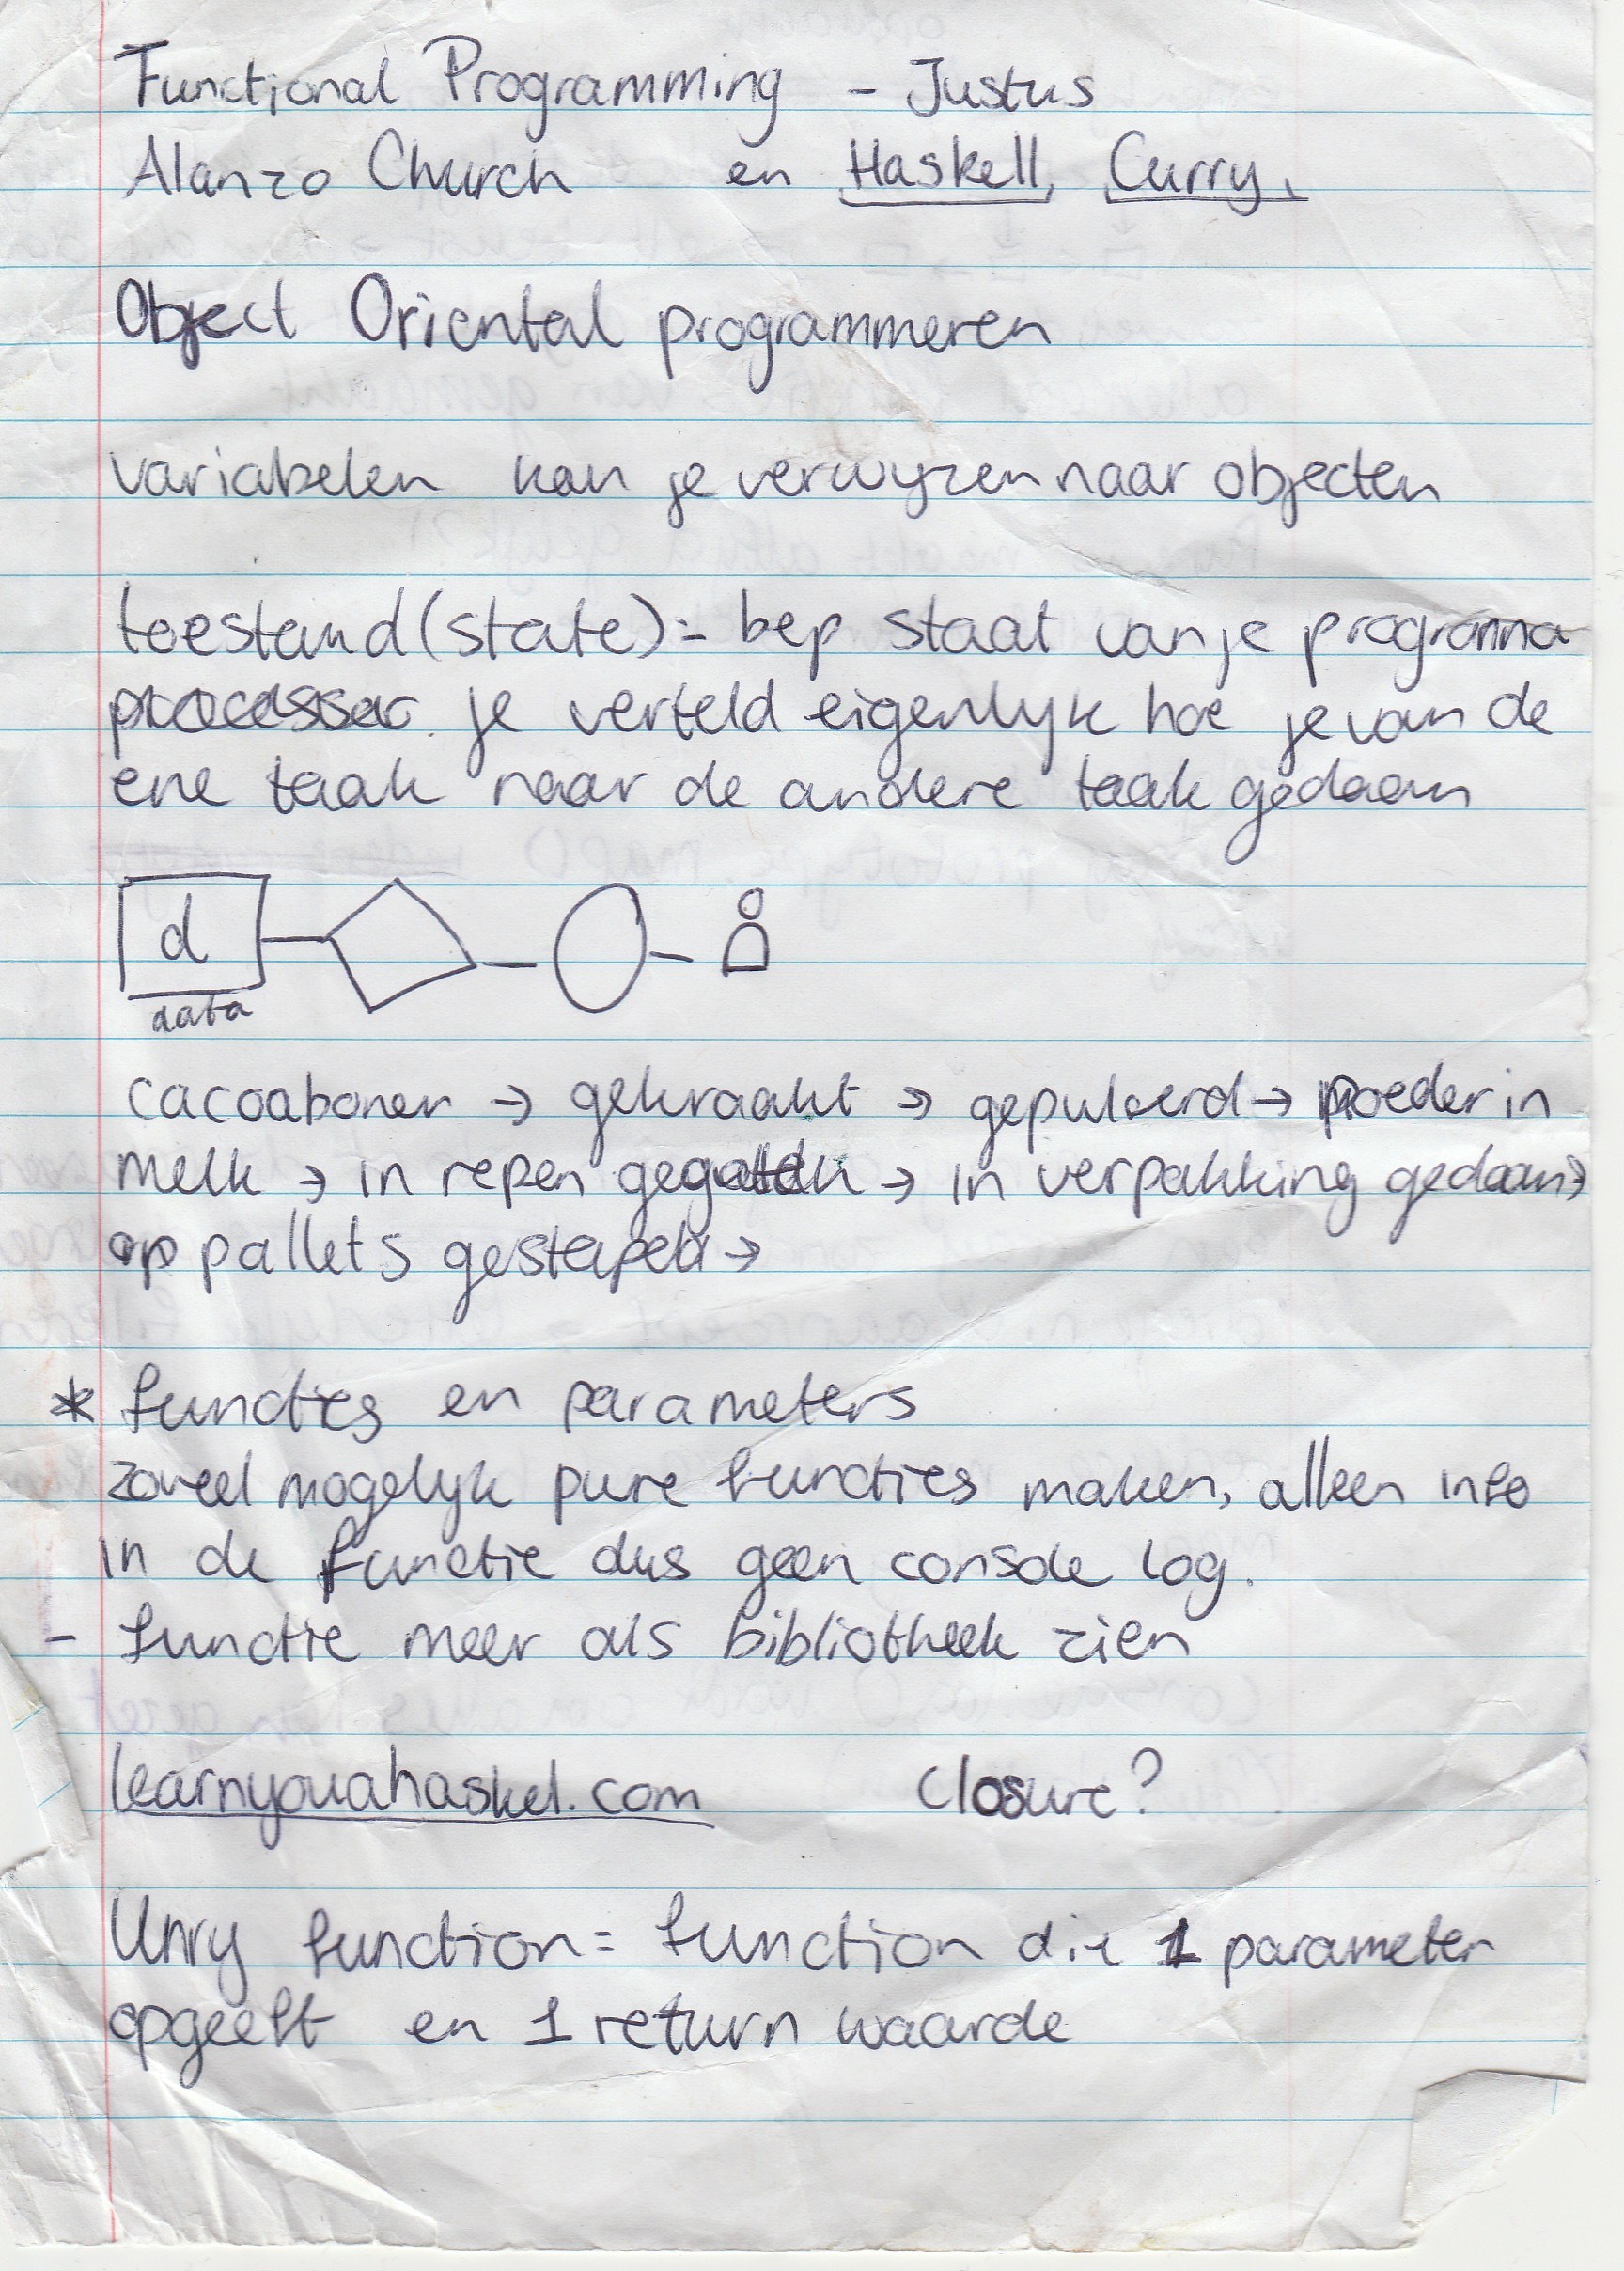 Functional Programming - Justus
Alanzo Church en Haskell, Curry.
Object Oriental programmeren
variabelen kan je verwyzen naar objecten
toestand (state) = bep staat van je programma
processor. je verteld eigenlyk hoe je van de
ene taak naar de andere taak gedaan
d
data
cacoabonen → gekraakt → gepulverd → poeder in
melk → in repen gegoten → in verpakking gedaan →
op pallets gestapeld →
* functies en parameters
zoveel mogelyk pure functies maken, alleen info
in de functie dus geen console log.
- functie meer als bibliotheek zien
learnyouahaskel.com closure?
Unry function = function die 1 parameter
opgeeft en 1 return waarde